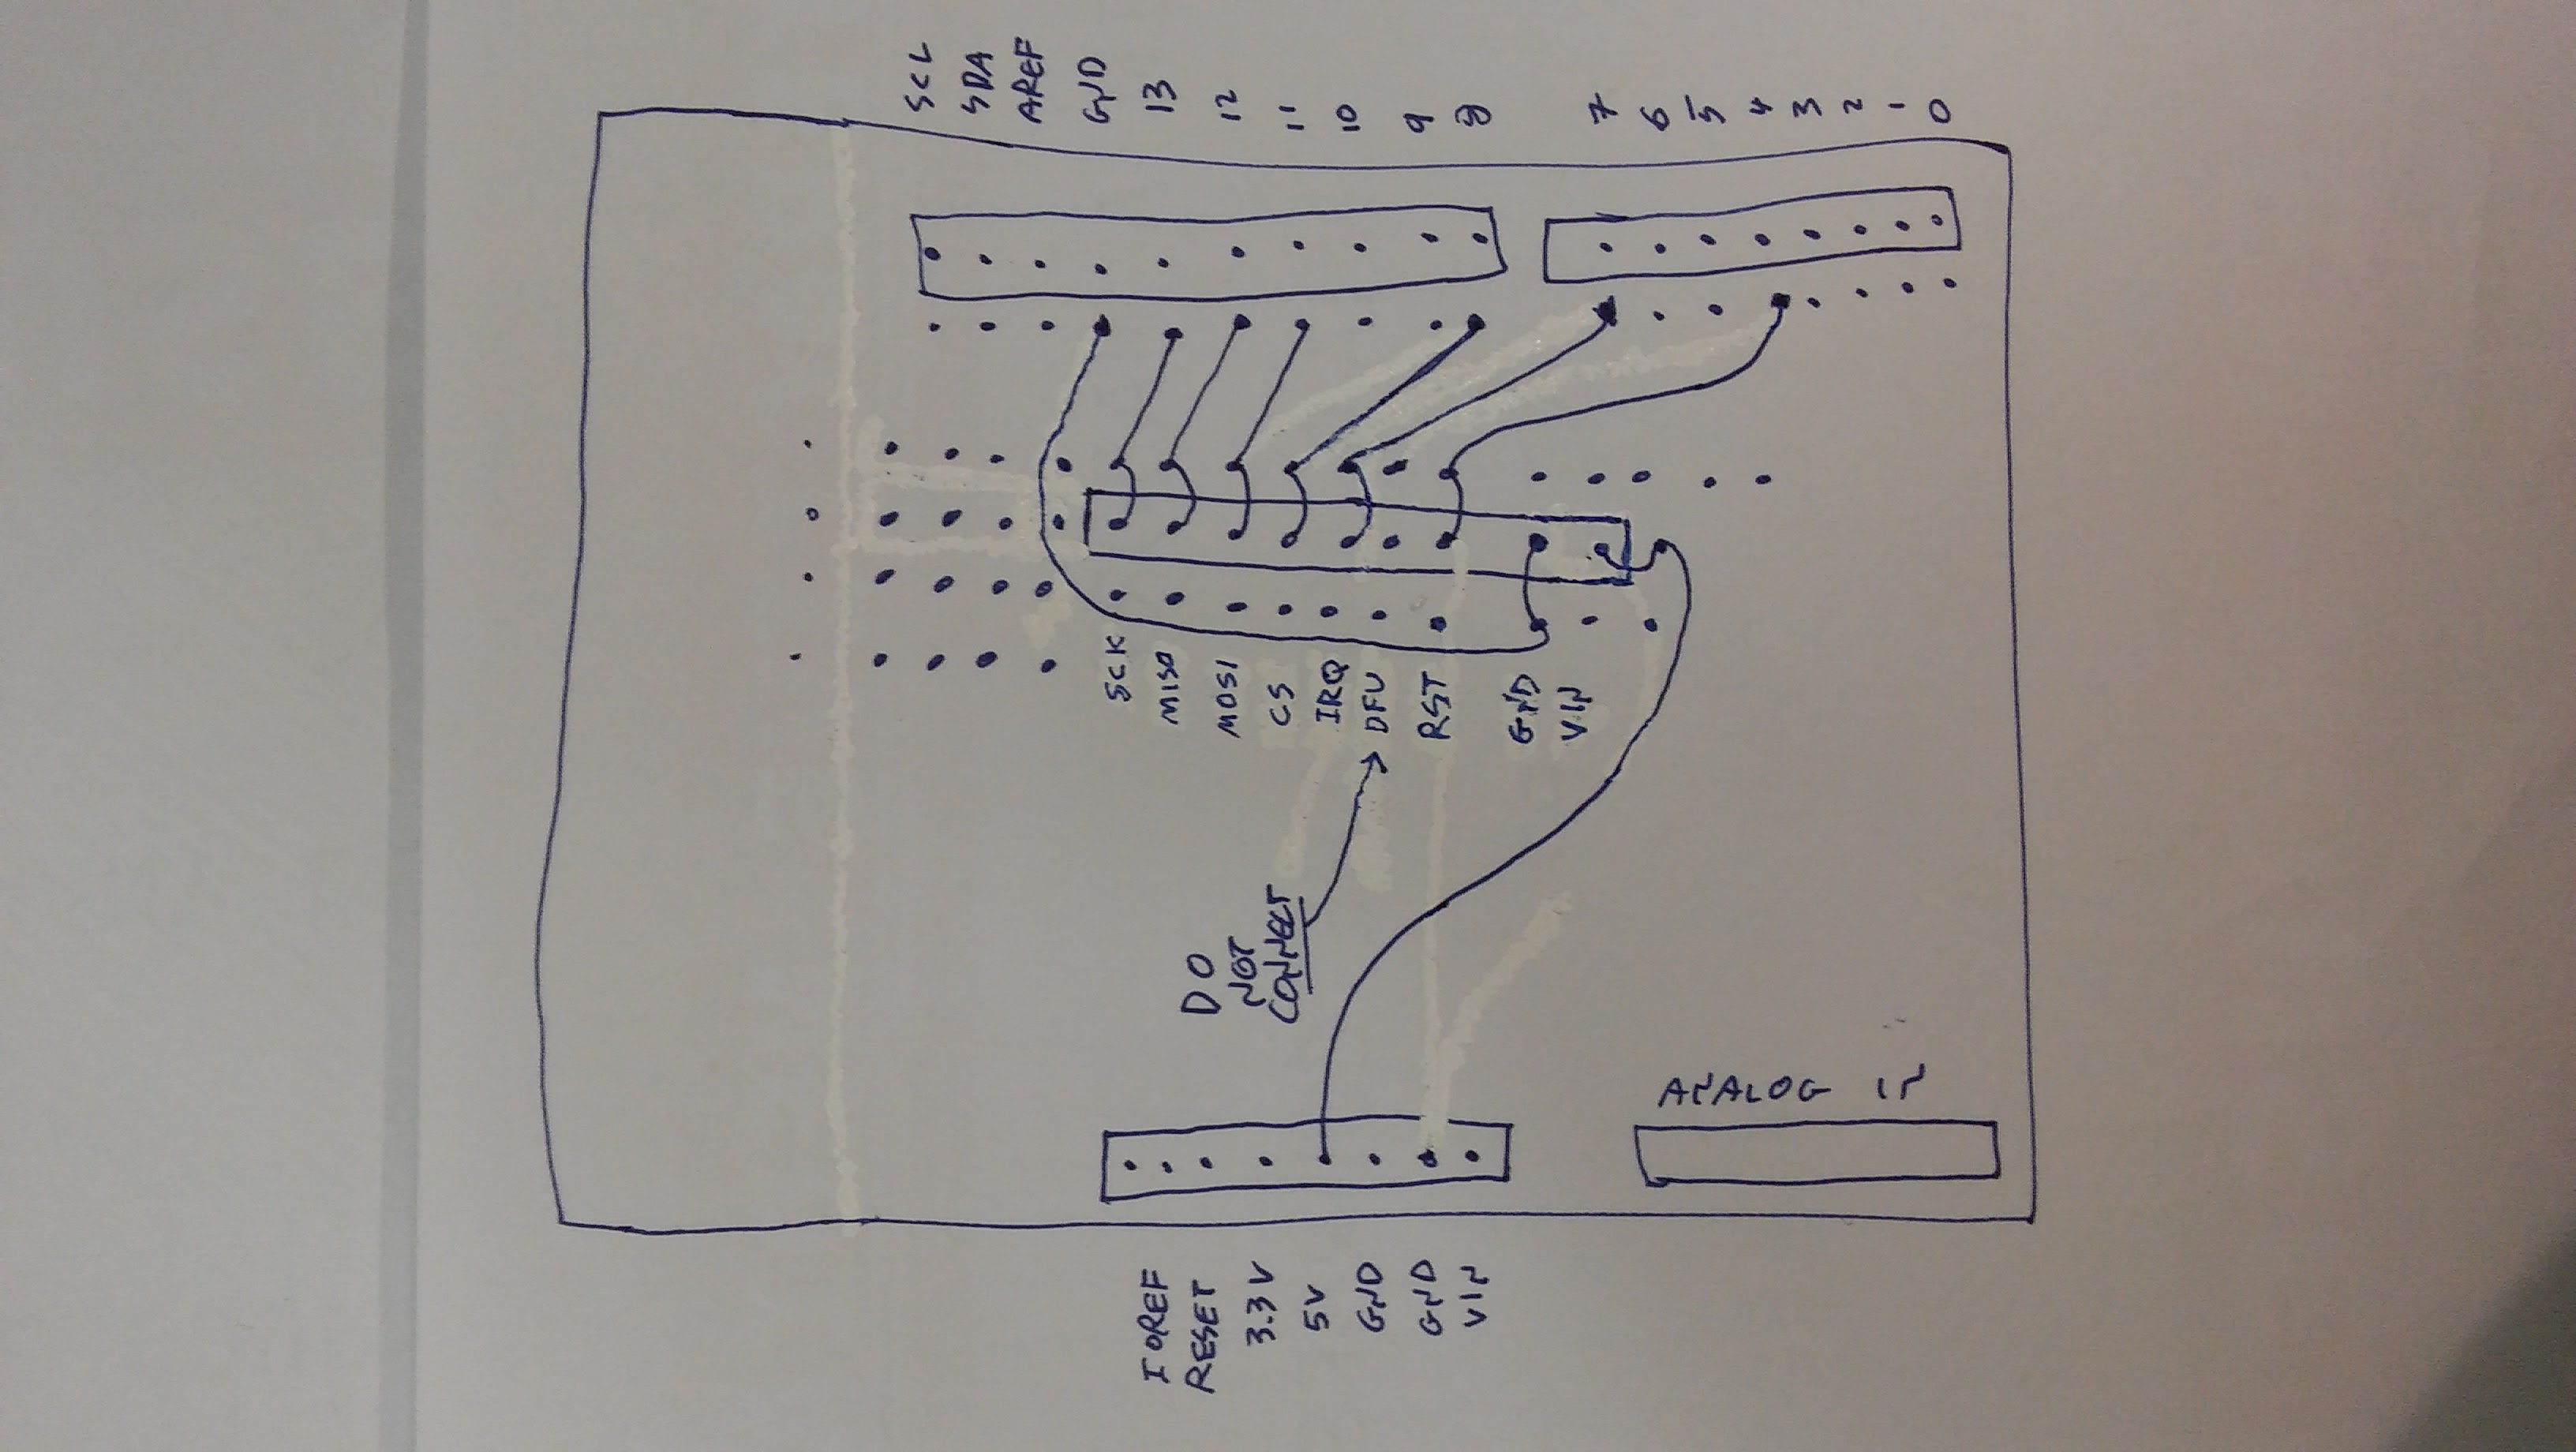 IOREF
RESET
3.3V
5V
GND
GND
VIN
DO
NOT
CONNECT
ANALOG IN
SCK
MISO
MOSI
CS
IRQ
DFU
RST
GND
VIN
SCL
SDA
AREF
GND
13
12
11
10
9
8
7
6
5
4
3
2
1
0